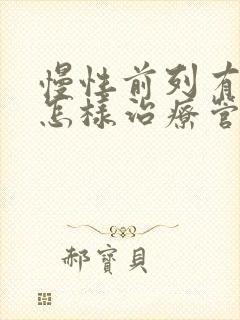 慢性前列有
怎樣治療管
郝寶貝